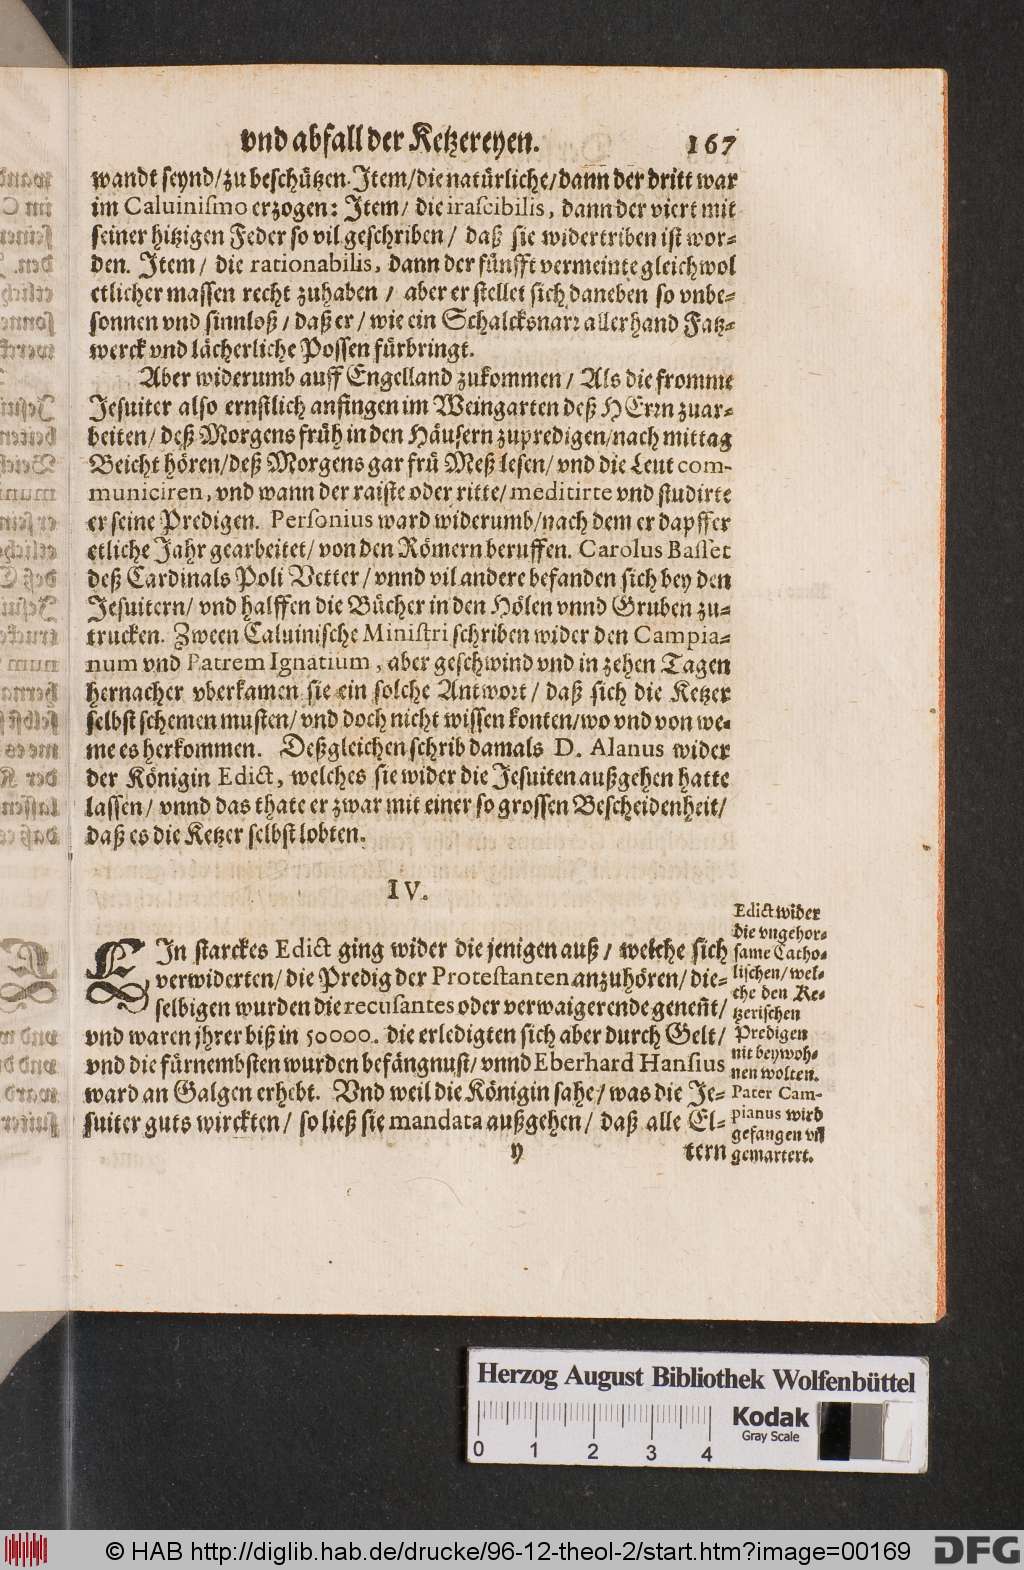 vnd abfall der Ketzereyen. 167
wandt seynd/zu beschützen. Item/die natürliche/dann der dritt war
im Caluinismo erzogen: Item/ die irascibilis, dann der viert mit
seiner hitzigen Feder so vil geschriben/ daß sie widertriben ist wor-
den. Item/ die rationabilis, dann der fünfft vermeinte gleichwol
etlicher massen recht zuhaben/ aber er stellet sich daneben so vnbe-
sonnen vnd sinnloß/ daß er/ wie ein Schalcksnarr allerhand Fatz-
werck vnd lächerliche Possen fürbringt.
Aber widerumb auff Engelland zukommen/ Als die fromme
Jesuiter also ernstlich anfingen im Weingarten deß HErrn zuar-
beiten/ deß Morgens früh in den Häusern zupredigen/nach mittag
Beicht hören/deß Morgens gar frü Meß lesen/ vnd die Leut com-
municiren, vnd wann der raißte oder ritte/ meditirte vnd studirte
er seine Predigen. Personius ward widerumb/nach dem er dapffer
etliche Jahr gearbeitet/ von den Römern beruffen. Carolus Basset
deß Cardinals Poli Vetter/ vnnd vil andere befanden sich bey den
Jesuitern/ vnd halffen die Bücher in den Hölen vnnd Gruben zu-
trucken. Zween Caluinische Ministri schriben wider den Campia-
num vnd Patrem Ignatium, aber geschwind vnd in zehen Tagen
hernacher vberkamen sie ein solche Antwort/ daß sich die Ketzer
selbst schemen musten/ vnd doch nicht wissen konten/wo vnd von we-
me es herkommen. Deßgleichen schrib damals D. Alanus wider
der Königin Edict, welches sie wider die Jesuiten außgehen hatte
lassen/ vnnd das thate er zwar mit einer so grossen Bescheidenheit/
daß es die Ketzer selbst lobten.
IV.
EIn starckes Edict ging wider die jenigen auß/ welche sich
verwiderten/ die Predig der Protestanten anzuhören/ die-
selbigen wurden die recusantes oder verwaigerende geneñt/
vnd waren jhrer biß in 50000. die erledigten sich aber durch Gelt/
vnd die fürnembsten wurden befängnust/ vnnd Eberhard Hansius
ward an Galgen erhebt. Vnd weil die Königin sahe/ was die Je-
suiter guts wirckten/ so ließ sie mandata außgehen/ daß alle El-
y tern
Edict wider
die vngehor-
same Catho-
lischen/ wel-
che den Ke-
tzerischen
Predigen
nit beywoh-
nen wolten.
Pater Cam-
pianus wird
gefangen vñ
gemartert.
Herzog August Bibliothek Wolfenbüttel
Kodak
Gray Scale
0 1 2 3 4
© HAB http://diglib.hab.de/drucke/96-12-theol-2/start.htm?image=00169
DFG